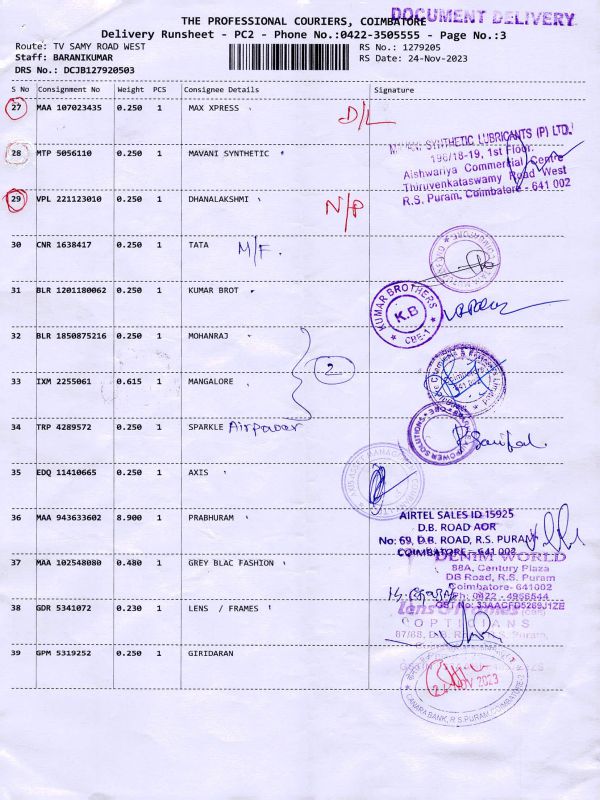 DOCUMENT DELIVERY
THE PROFESSIONAL COURIERS, COIMBATORE
Delivery Runsheet - PC2 - Phone No.:0422-3505555 - Page No.:3
Route: TV SAMY ROAD WEST RS No.: 1279205
Staff: BARANIKUMAR RS Date: 24-Nov-2023
DRS No.: DCJB127920503
S No Consignment No Weight PCS Consignee Details Signature
27 MAA 107023435 0.250 1 MAX XPRESS D/L
28 MTP 5056110 0.250 1 MAVANI SYNTHETIC
SYNTHETIC LUBRICANTS (P) LTD.
196/18-19, 1st Floor,
Aishwariya Commercial Centre
Thiruvenkataswamy Road West
R.S. Puram, Coimbatore - 641 002
29 VPL 221123010 0.250 1 DHANALAKSHMI N/P
30 CNR 1638417 0.250 1 TATA M/F.
31 BLR 1201180062 0.250 1 KUMAR BROT
KUMAR BROTHERS
K.B
CBE-1
32 BLR 1850875216 0.250 1 MOHANRAJ
2
33 IXM 2255061 0.615 1 MANGALORE
34 TRP 4289572 0.250 1 SPARKLE Airpower
POWER SOLUTIONS
35 EDQ 11410665 0.250 1 AXIS
36 MAA 943633602 8.900 1 PRABHURAM
AIRTEL SALES ID 15925
D.B. ROAD AOR
No: 69, D.B. ROAD, R.S. PURAM
COIMBATORE - 641 002
37 MAA 102548080 0.480 1 GREY BLAC FASHION
DENIM WORLD
88A, Century Plaza
DB Road, R.S. Puram
Coimbatore- 641002
Ph: 0422 - 4956544
GST No: 33AACFD5269J1ZE
38 GDR 5341072 0.230 1 LENS / FRAMES
lens & frames
OPTICIANS
87/88, D.B. Puram,
39 GPM 5319252 0.250 1 GIRIDARAN
24 NOV 2023
CANARA BANK, R.S.PURAM, COIMBATORE-2